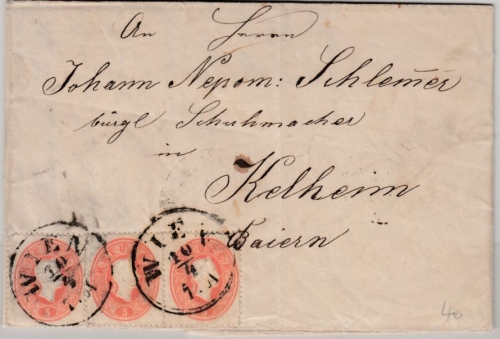 An Herrn
Johann Nepom: Schlem̅er
bürgl Schuhmacher
in
Kelheim
Baiern
WIEN
10/4
7.A
WIEN
10/4
7.A
5
5
40